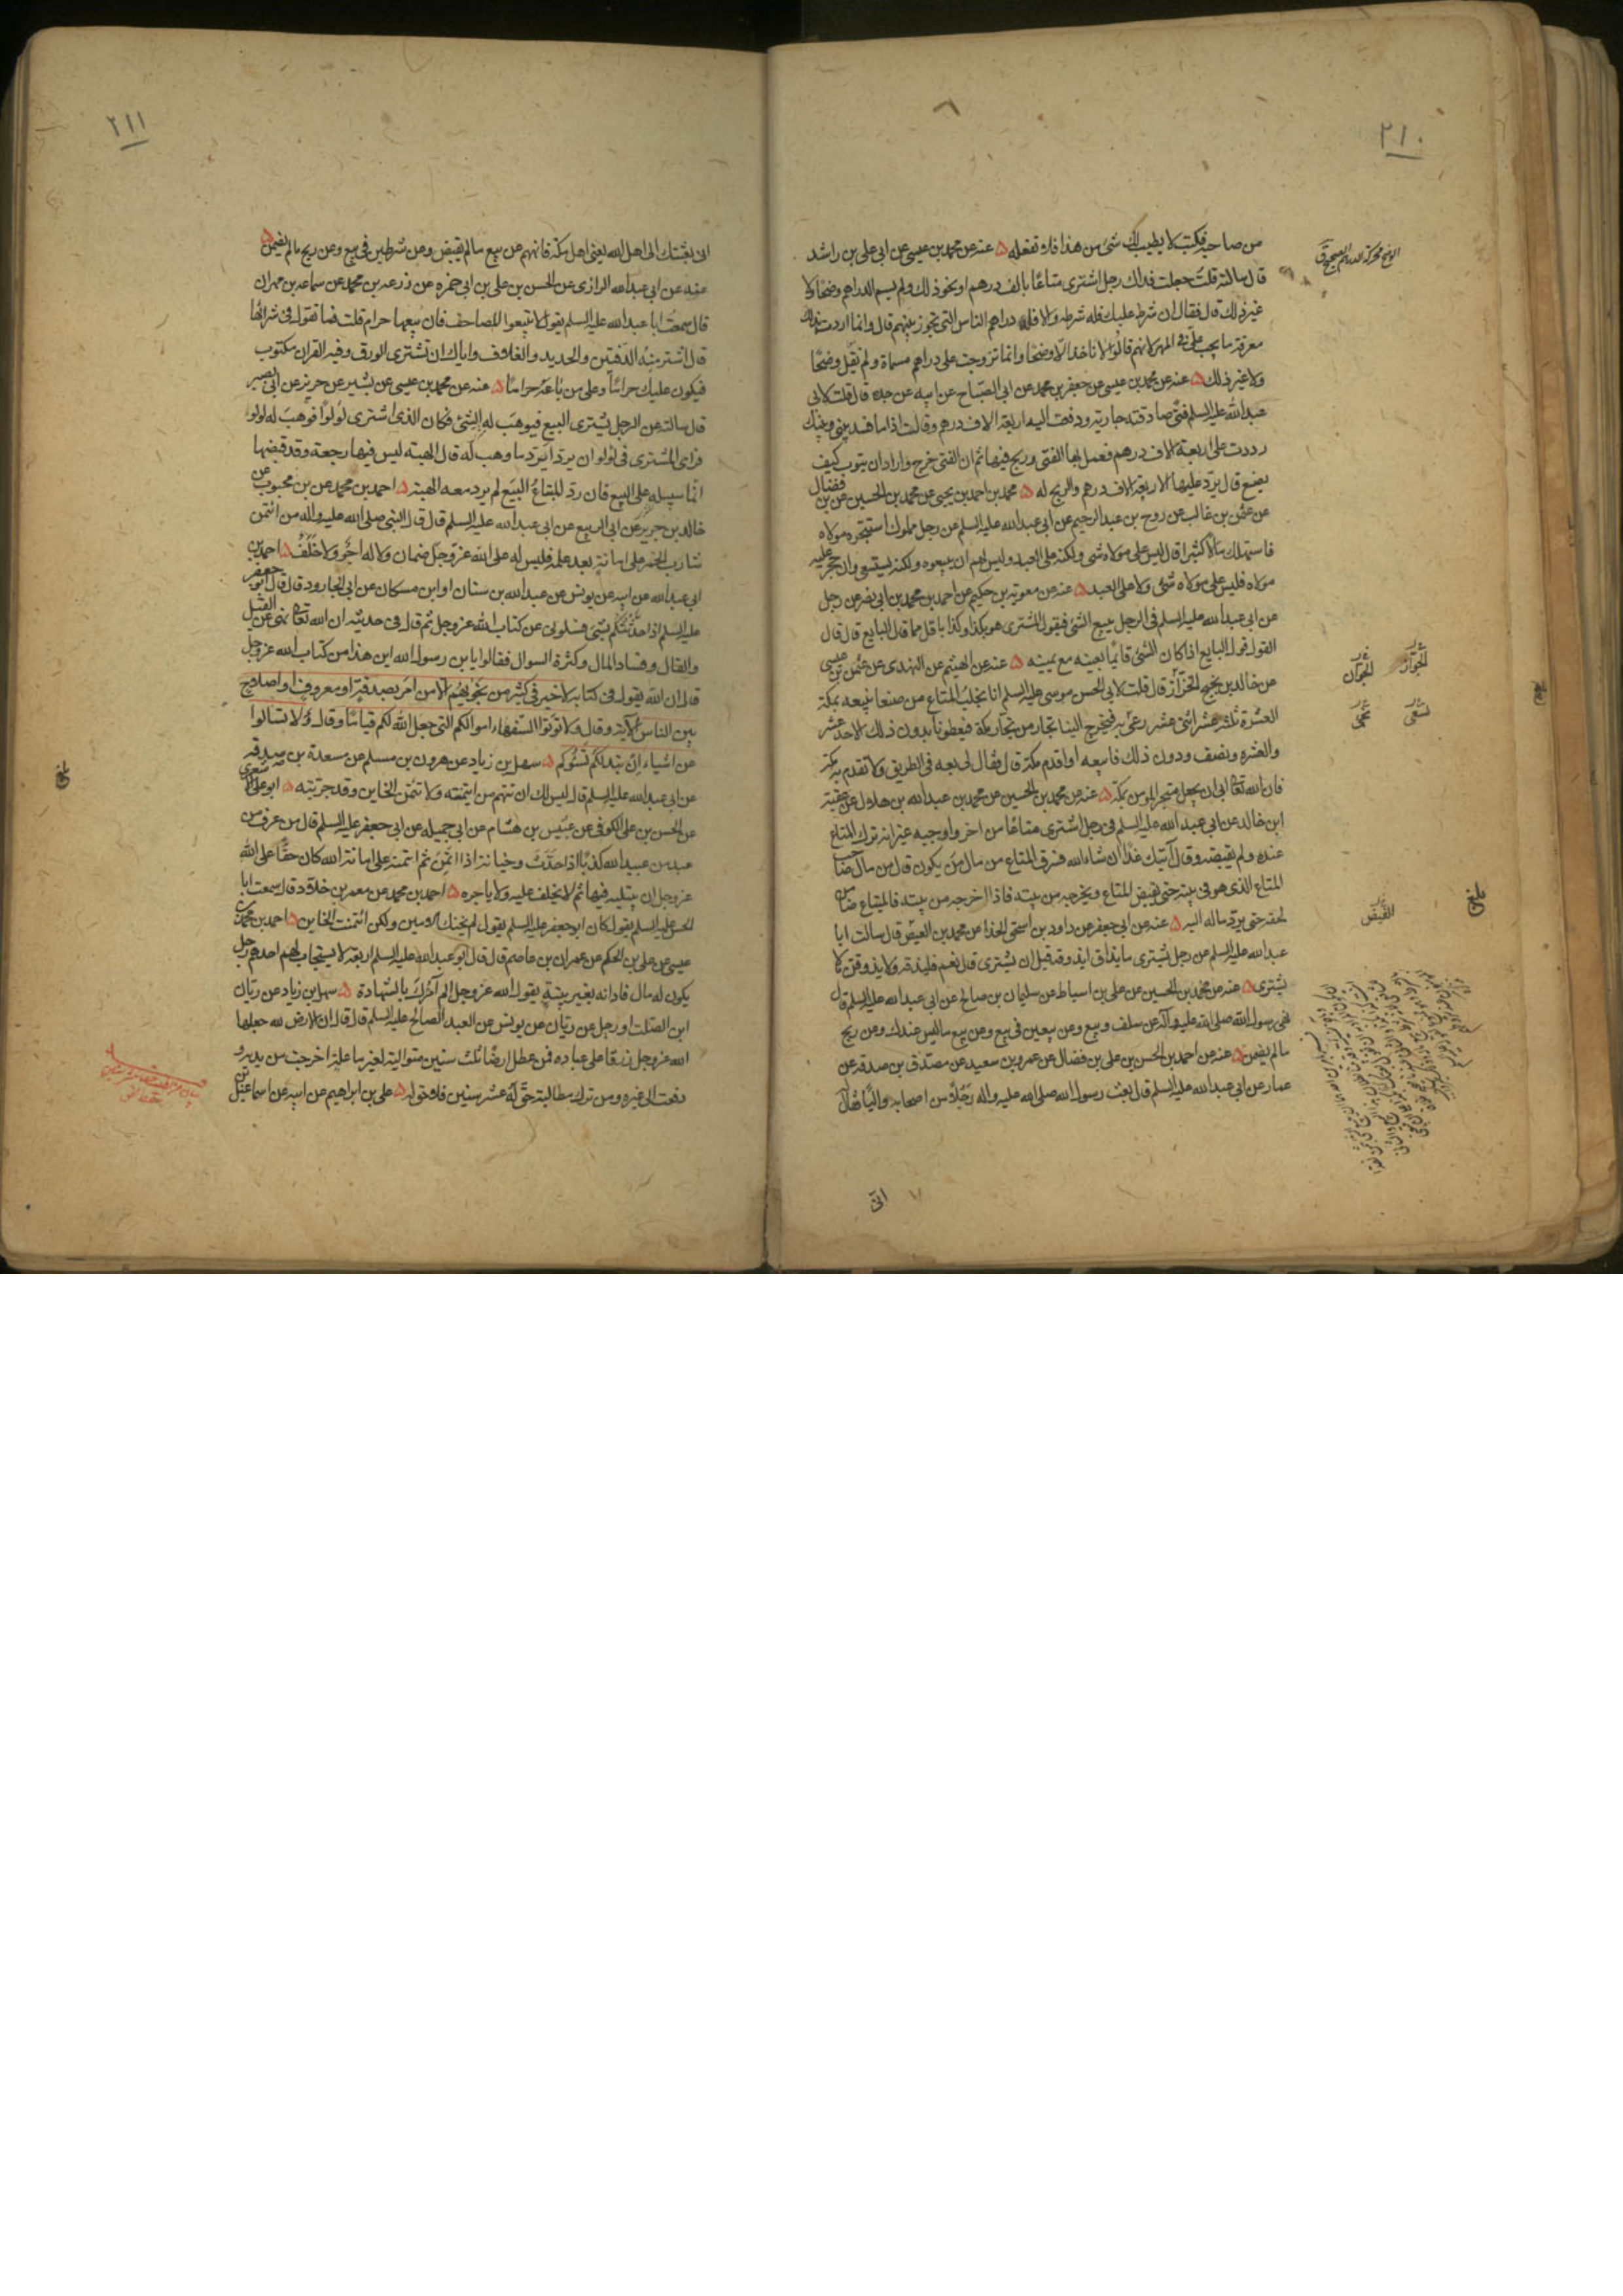 ٢١٠
من صاحبه فكتب لا يطيب لك شئ من هذا فلا تفعله ۵ عنه عن محمد بن عيسى عن ابي علي بن راشد
قال سالته قلت جعلت فداك رجل اشترى متاعًا بالف درهم او نحو ذلك ولم يسم الدراهم وضحًا ولا
غير ذلك قال فقال ان شرط عليك فله شرطه والا فله دراهم الناس التي تجوز بينهم قال وانما اردت بذلك
معرفة ما يجب علي في المهر لانهم قالوا لا ناخذ الا وضحًا وانما تزوجت على دراهم مسماة ولم نقل وضحًا
ولا غير ذلك ۵ عنه عن محمد بن عيسى عن جعفر بن محمد عن ابي الصباح عن ابيه عن جده قال قلت لابي
عبد الله عليه السلم فتى صادقته جارية ودفعت اليه اربعة الاف درهم وقالت اذا ما فسد بيني وبينك
رددت علي اربعة الاف درهم فعمل بها الفتى وربح فيها ثم ان الفتى خرج واراد ان يتوب كيف
يصنع قال يرد عليها الاربعة الاف درهم والربح له ۵ محمد بن احمد بن يحيى عن محمد بن الحسين عن بن فضال
عن عثمن بن غالب عن روح بن عبد الرحيم عن ابي عبد الله عليه السلم عن رجل مملوك استتجره مولاه
فاستهلك مالاً كثيرا قال ليس على مولاه شئ ولكنه على العبد وليس لهم ان يبيعوه ولكنه يستسعى وان حجر عليه
مولاه فليس على مولاه شئ ولا على العبد ۵ عنه عن معوية بن حكيم عن احمد بن محمد بن ابي نصر عن رجل
عن ابي عبد الله عليه السلم في الرجل يبيع الشئ فيقول المشترى هو بكذا وكذا باقل مما قال البايع قال قال
القول قول البايع اذا كان الشئ قائمًا بعينه مع يمينه ۵ عنه عن الهيثم عن النهدى عن عثمن بن عيسى
عن خالد بن نجيح الخزاز قال قلت لابي الحسن موسى عليه السلم انا نجلب المتاع من صنعا نبيعه بمكة
العشرة ثلثة عشر اثنى عشر ونجئ به فيخرج الينا تجار من تجار مكة فيعطونا بدون ذلك الاحد عشر
والعشره ونصف ودون ذلك فابيعه او اقدم مكة قال فقال لي بعه في الطريق ولا تقدم به مكة
فان الله تعالى ابى ان يجعل متجر المومن بمكة ۵ عنه عن محمد بن الحسين عن محمد بن عبد الله بن هلال عن عقبة
ابن خالد عن ابي عبد الله عليه السلم في رجل اشترى متاعًا من اخر واوجبه غير انه ترك المتاع
عنده ولم يقبضه وقال آتيك غدًا ان شاء الله فسرق المتاع من مال مَن يكون قال من مال صاحب
المتاع الذى هو في بيته حتى يقبض المتاع ويخرجه من بيته فاذا اخرجه من بيته فالمبتاع ضامن
لحقه حتى يرد ماله اليه ۵ عنه عن ابي جعفر عن داود بن اسحق الحذا عن محمد بن العيص قال سالت ابا
عبد الله عليه السلم عن رجل يشترى ما يذاق ايذوقه قبل ان يشترى قال نعم فليذقه ولا يذوقن ما لا
يشترى ۵ عنه عن محمد بن الحسين عن علي بن اسباط عن سليمان بن صالح عن ابي عبد الله عليه السلم قال
نهى رسول الله صلى الله عليه وآله عن سلف وبيع وعن بيعين في بيع وعن بيع ما ليس عندك وعن ربح
ما لم يضمن ۵ عنه عن احمد بن الحسن بن علي بن فضال عن عمرو بن سعيد عن مصدق بن صدقه عن
عمار عن ابي عبد الله عليه السلم قال بعث رسول الله صلى الله عليه واله رجلاً من اصحابه واليًا فقال
انى
الجواز الجوان
القبض
بلغ
٢١١
انى بعثتك الى اهل الله يعنى اهل مكة فانههم عن بيع ما لم يقبض وعن شرطين في بيع وعن ربح ما لم يضمن ۵
عنه عن ابي عبد الله الرازى عن الحسن بن علي بن ابي حمزه عن زرعه بن محمد عن سماعه بن مهران
قال سمعت ابا عبد الله عليه السلم يقول لا تبيعوا المصاحف فان بيعها حرام قلت فما تقول في شرائها
قال اشتر منه الدفتين والحديد والغلاف واياك ان تشترى الورق وفيه القران مكتوب
فيكون عليك حرامًا وعلى من باعه حرامًا ۵ عنه عن محمد بن عيسى عن بشير عن حريز عن ابي بصير
قال سالته عن الرجل يشترى البيع فيوهب له الشئ فكان الذى اشترى لولوًا فوهب له لولو
فراى المشترى في لولو ان يرد ايرد ما وهب له قال الهبة ليس فيها رجعة وقد قبضها
انما سبيله على البيع فان رد المبتاع البيع لم يرد معه الهبة ۵ احمد بن محمد عن بن محبوب عن
خالد بن جرير عن ابي الربيع عن ابي عبد الله عليه السلم قال قال النبى صلى الله عليه واله من ائتمن
شارب الخمر على امانة بعد علمه فليس له على الله عز وجل ضمان ولا له اجر ولا خلف ۵ احمد بن
ابي عبد الله عن ابيه عن يونس عن عبد الله بن سنان او ابن مسكان عن ابي الجارود قال قال ابو جعفر
عليه السلم اذا حدثتكم بشئ فسلونى عن كتاب الله عز وجل ثم قال في حديثه ان الله تعالى نهى عن القيل
والقال وفساد المال وكثرة السوال فقالوا يا بن رسول الله اين هذا من كتاب الله عز وجل
قال ان الله يقول في كتابه لا خير في كثير من نجويهم الا من امر بصدقة او معروف او اصلاح
بين الناس الآية وقال ولا توتوا السفهاء اموالكم التى جعل الله لكم قيامًا وقال لا تسالوا
عن اشياء ان تبد لكم تسؤكم ۵ سهل بن زياد عن هرون بن مسلم عن مسعدة بن صدقه
عن ابي عبد الله عليه السلم قال ليس لك ان تتهم من ائتمنته ولا تئتمن الخاين وقد جربته ۵ ابو علي الاشعرى
عن الحسن بن علي الكوفى عن عبيس بن هشام عن ابي جميله عن ابي جعفر عليه السلم قال من عرف من
عبد من عبيد الله كذبًا اذا حدث وخيانة اذا ائتمن ثم ائتمنه على امانة الله كان حقًا على الله
عز وجل ان يبتليه فيها ثم لا يخلف عليه ولا ياجره ۵ احمد بن محمد عن معمر بن خلاد قال سمعت ابا
الحسن عليه السلم يقول كان ابو جعفر عليه السلم يقول لم يخنك الامين ولكن ائتمنت الخاين ۵ احمد بن محمد بن
عيسى عن علي بن الحكم عن عمران بن عاصم قال قال ابو عبد الله عليه السلم اربعة لا يستجاب لهم احدهم رجل
يكون له مال فادانه بغير بينة يقول الله عز وجل الم آمرك بالشهادة ۵ سهل بن زياد عن ريان
ابن الصلت او رجل عن ريان عن يونس عن العبد الصالح عليه السلم قال قال ان الارض لله جعلها
الله عز وجل رزقًا على عباده فمن عطل ارضًا ثلث سنين متوالية لغير ما علة اخرجت من يديه و
دفعت الى غيره ومن ترك مطالبة حق له عشر سنين فلا حق له ۵ علي بن ابراهيم عن ابيه عن اسماعيل بن
بلغ